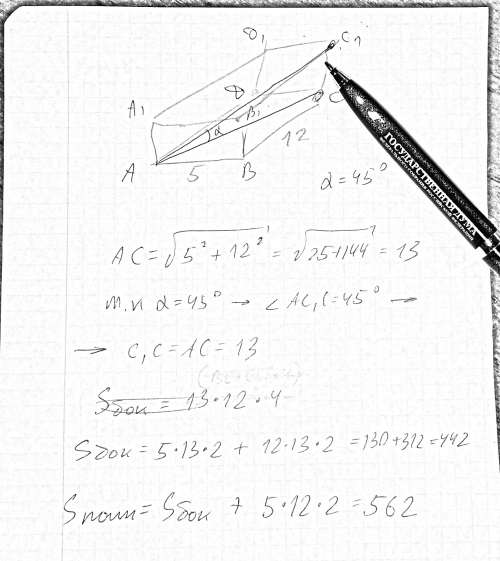 D₁ C₁
A₁ D B₁ C
α
A 5 B 12
α = 45°
ГОСУДАРСТВЕННАЯ ДУМА
AC = √5² + 12² = √25+144 = 13
т.к α = 45° → ∠ AC₁C = 45° →
→ C₁C = AC = 13
Sбок = 13·12·4
Sбок = 5·13·2 + 12·13·2 = 130+312 = 442
Sполн = Sбок + 5·12·2 = 562